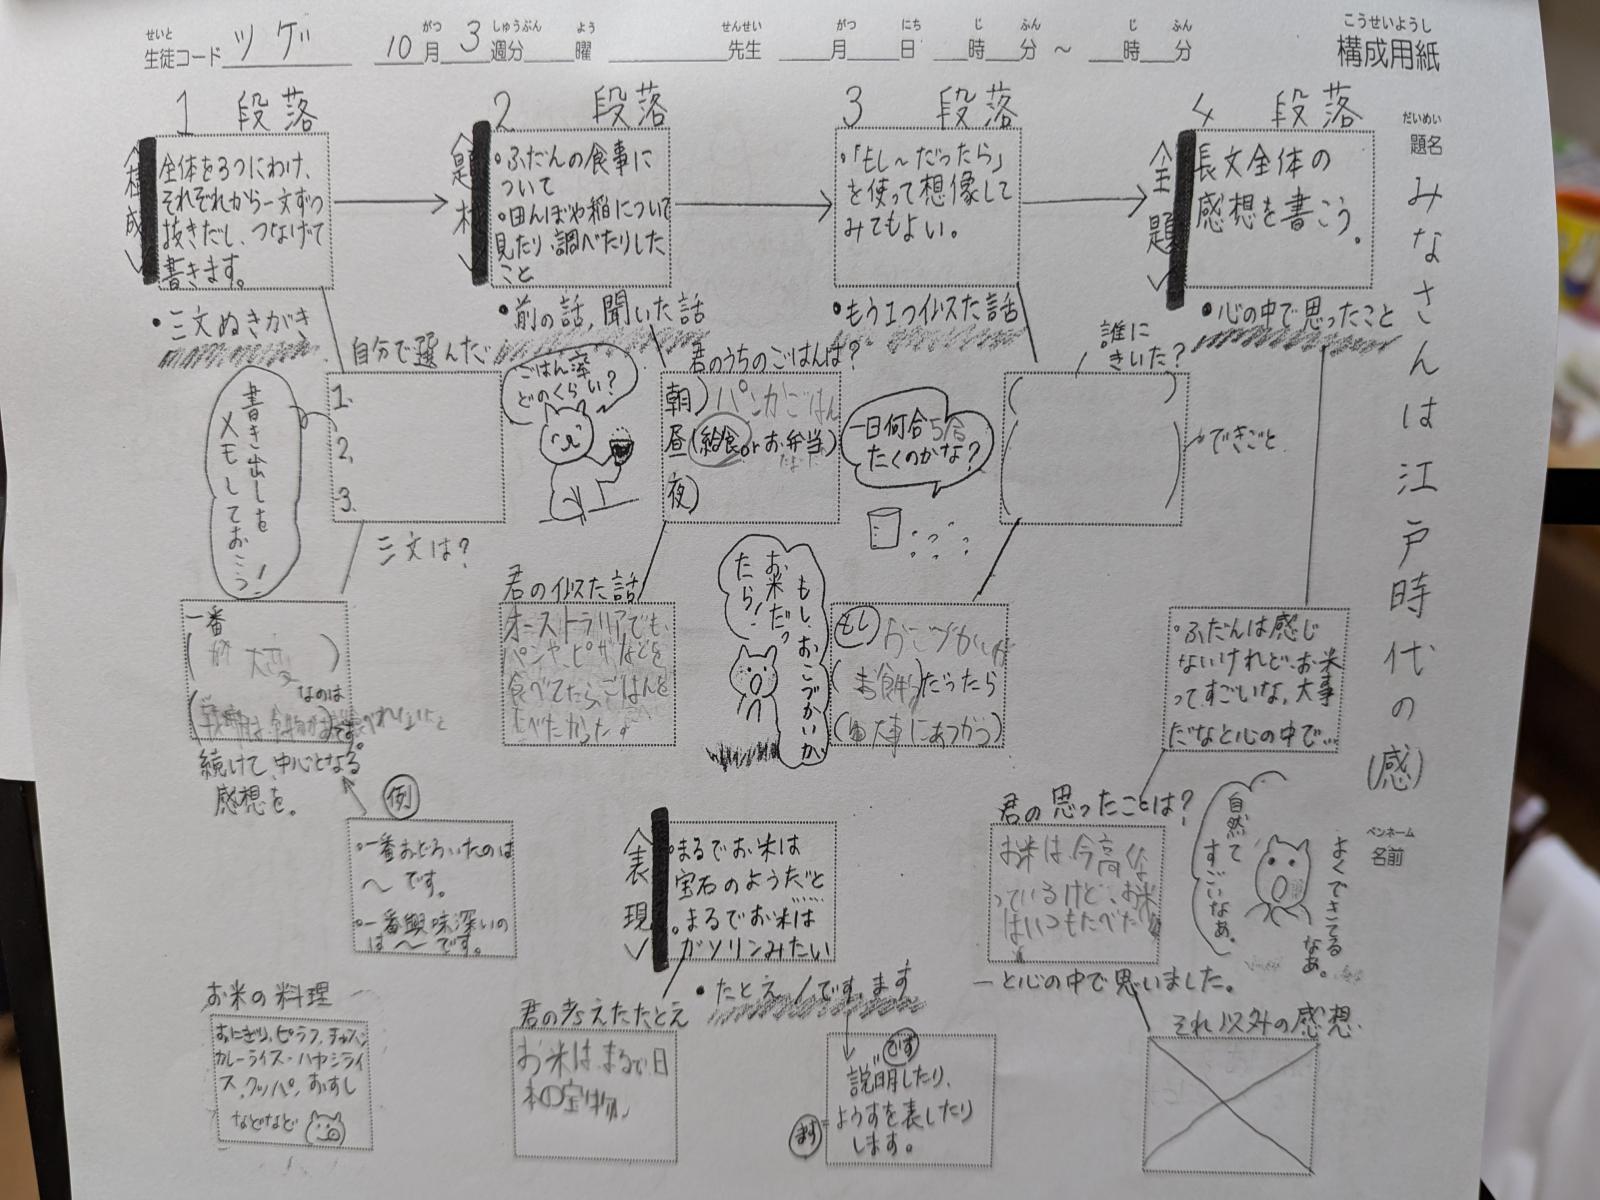 せいと がつ しゅうぶん よう せんせい がつ にち じ ふん じ ふん こうせいようし
生徒コード ツゲ 10月 3週分 曜 先生 月 日 時 分 〜 時 分 構成用紙
だいめい
題名
みなさんは江戸時代の(感)
ペンネーム
名前
1 段落
〈構成〉
全体を3つにわけ、
それぞれから一文ずつ
抜きだし、つなげて
書きます。
•三文ぬきがき
自分で選んだ
書き出しを
メモしておこう!
1.
2.
3.
三文は?
一番
( 大変 )
なのは
です。
続けて、中心となる
感想を。
例
◦一番おどろいたのは
〜です。
◦一番興味深いの
は〜です。
お米の料理
おにぎり、ピラフ、チャーハン
カレーライス・ハヤシライ
ス、クッパ、おすし
などなど
2 段落
〈題材〉
◦ふだんの食事に
ついて
◦田んぼや稲について
見たり、調べたりした
こと
•前の話,聞いた話
ごはん率
どのくらい?
君のうちのごはんは?
朝)パンかごはん
昼(給食orお弁当)
夜)
君の似た話
オーストラリアでも、
パンや、ピザなどを
食べてたら、ごはんを
たべたかった。
〈表現〉
◦まるでお米は
宝石のようだと
◦まるでお米は
ガソリンみたい
•たとえ/です、ます
君の考えたたとえ
お米は、まるで日
本の宝物
3 段落
◦「もし〜だったら」
を使って想像して
みてもよい。
•もう1つ似た話
一日何合 5合
たくのかな?
誰に
きいた?
( )
( )
できごと
もし、おこづかいが
お米だっ
たら!
もし おこづかいが
(お餅)だったら
(大事にあつかう)
です
説明したり、
ます ようすを表したり
します。
4 段落
〈全題〉
長文全体の
感想を書こう。
•心の中で思ったこと
◦ふだんは感じ
ないけれど、お米
ってすごいな。大事
だなと心の中で…
君の思ったことは?
お米は今高くな
っているけど、お米
はいつもたべた
自然て
すごいなあ。
よくできてる
なあ。
―と心の中で思いました。
それ以外の感想